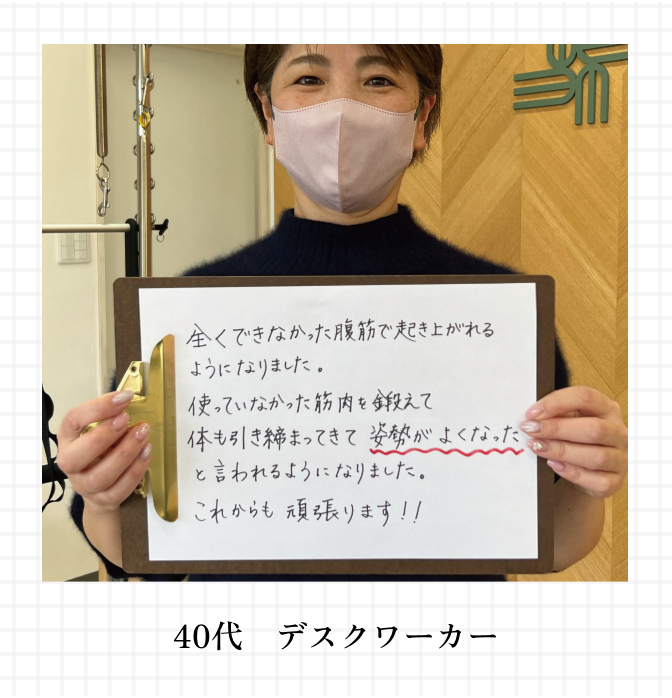 全くできなかった腹筋で起き上がれる
ようになりました。
使っていなかった筋肉を鍛えて
体も引き締まってきて 姿勢が よくなった
と言われるようになりました。
これからも 頑張ります!!
40代 デスクワーカー